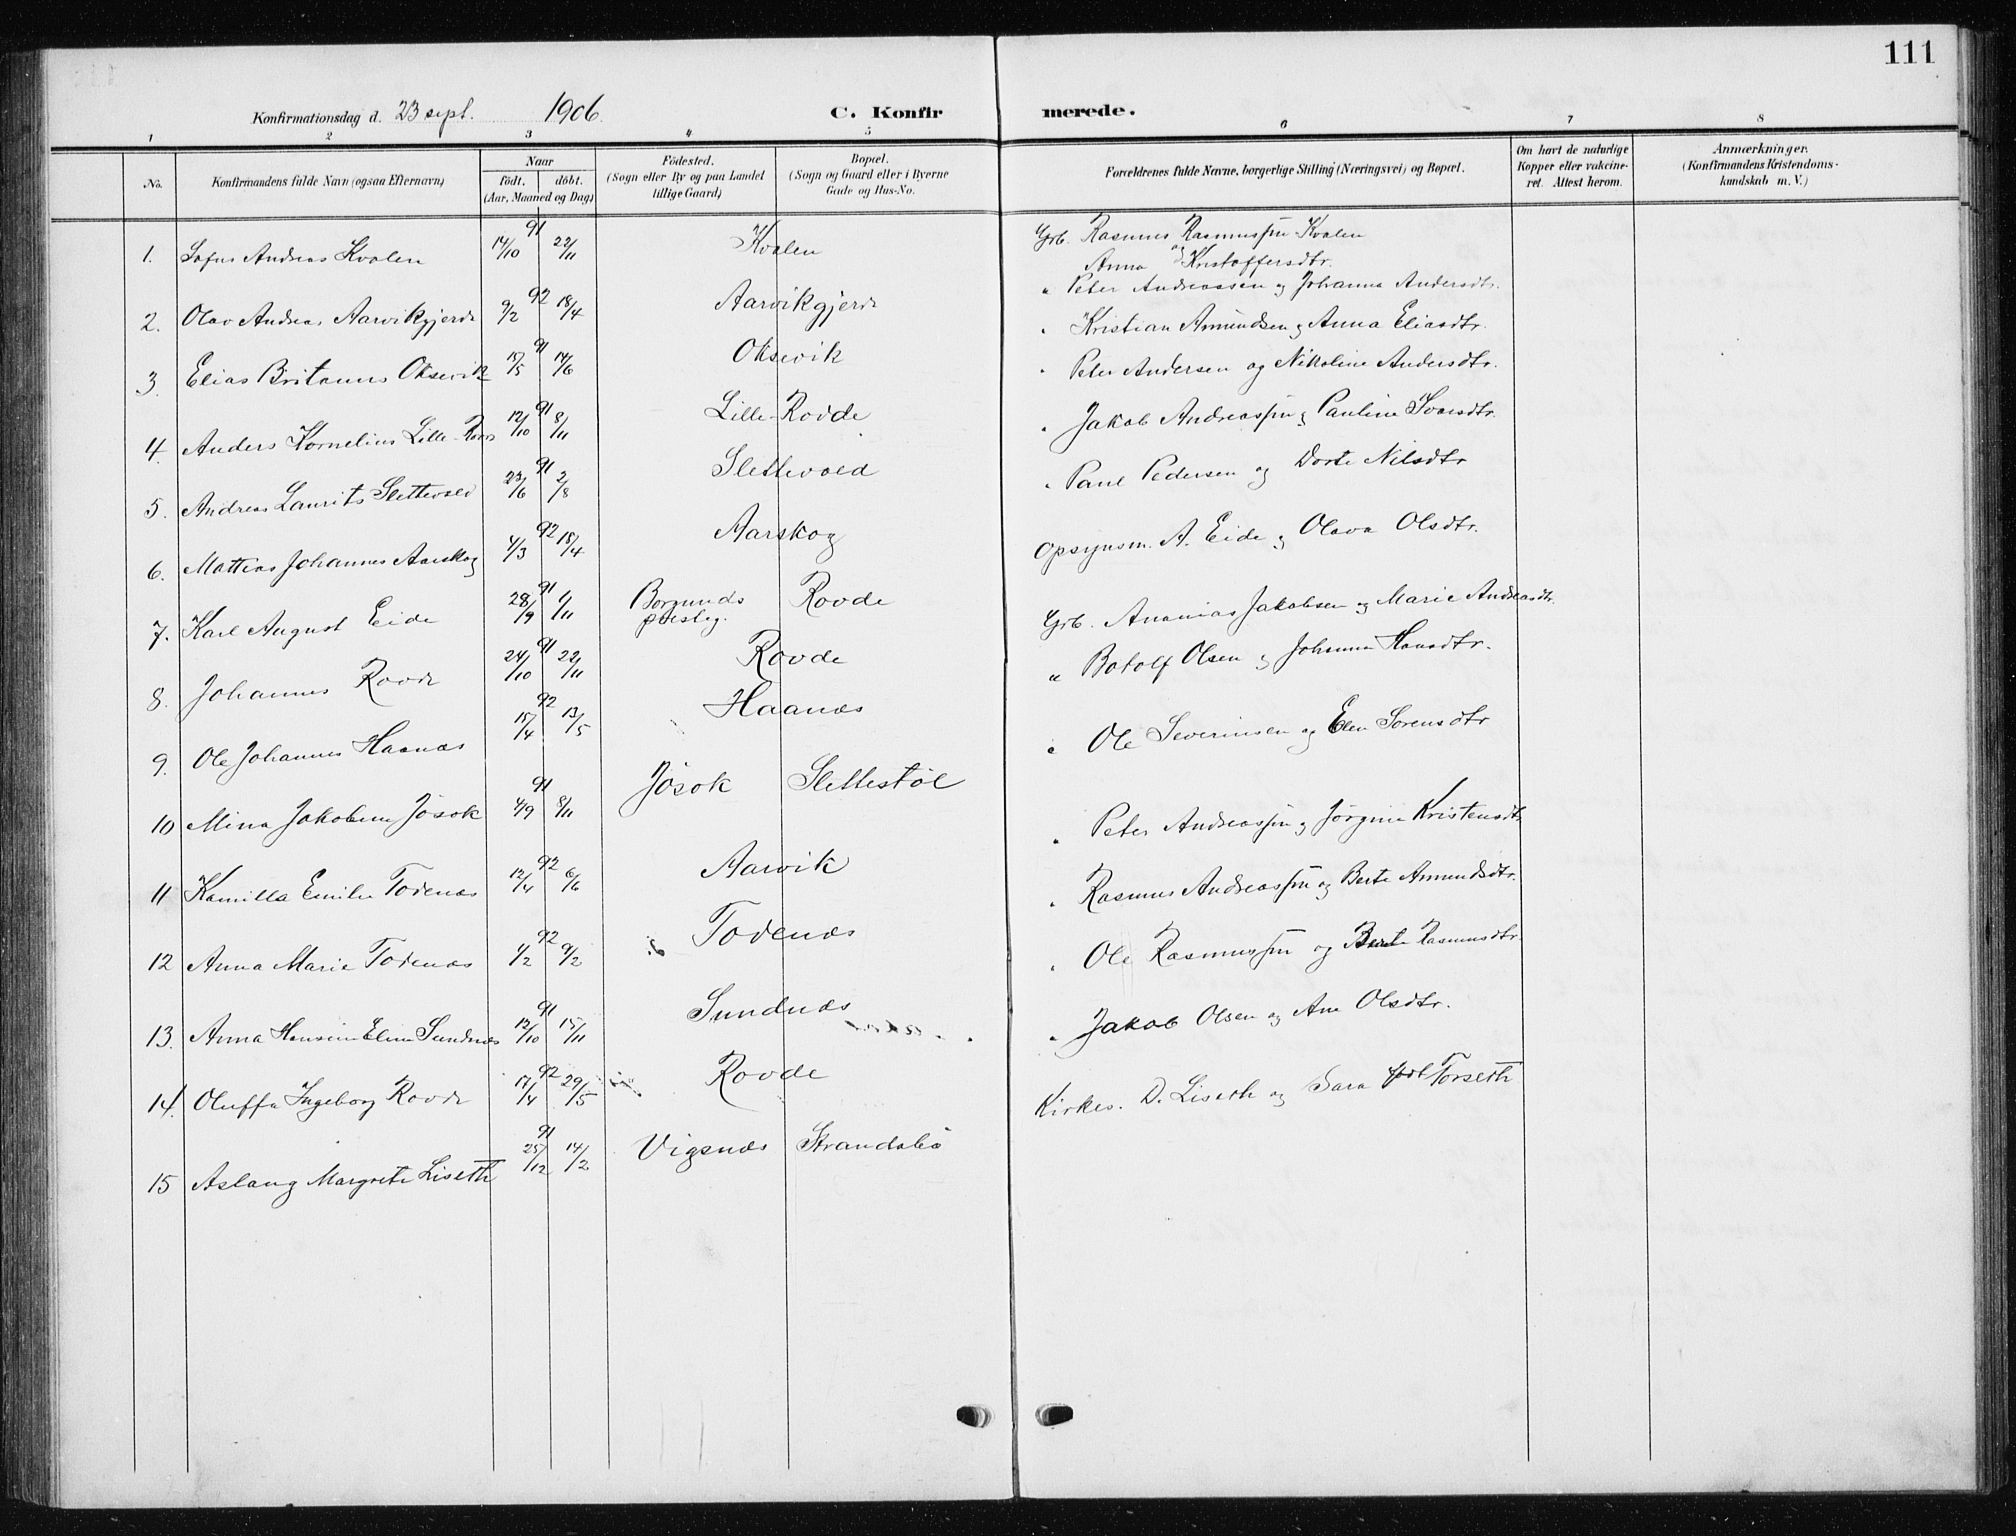 111
Konfirmationsdag d. 23 sept. 1906 C. Konfirmerede.
1 2 3 4 5 6 7 8
No. Konfirmandens fulde Navn (ogsaa Efternavn) Naar födt. döbt. (Aar, Maaned og Dag) Födested. (Sogn eller By og paa Landet tillige Gaard) Bopæl. (Sogn og Gaard eller i Byerne Gade og Hus-No. Forældrenes fulde Navne, borgerlige Stilling (Næringsvei) og Bopæl. Om havt de naturlige Kopper eller vakcineret. Attest herom. Anmærkninger. (Konfirmandens Kristendomskundskab m. V.)
1. Sofus Andreas Kvalen 14/10 91 22/11 Kvalen Grb. Rasmus Rasmussen Kvalen og Anna Kristoffersdtr.
2. Olav Andreas Aarvikgjerde 9/2 92 18/4 Aarvikgjerde " Peter Andreassen og Johanna Andersdtr.
3. Elias Britanus Oksevik 15/5 91 14/6 Oksevik " Kristian Amundsen og Anna Eliasdtr.
4. Anders Kornelius Lille-Rovde 12/10 91 8/11 Lille-Rovde " Peter Andersen og Nikoline Andersdtr.
5. Andreas Laurits Slettevold 23/6 91 2/8 Slettevold " Jakob Andreassen og Pauline Svensdtr.
6. Mattias Johannes Aarskog 4/3 92 18/4 Aarskog " Paul Pedersen og Dorte Nilsdtr
7. Karl August Eide 28/9 91 1/11 Borgunds prestegj. Rovde Opsynsm. A. Eide og Olava Olsdtr.
8. Johannes Rovde 24/10 91 22/11 Rovde Grb. Ananias Jakobsen og Marie Andreasdtr.
9. Ole Johannes Haanæs 15/4 92 13/5 Haanæs " Botolf Olsen og Johanna Hansdtr.
10 Mina Jakobine Jøsok 4/9 91 8/11 Jøsok Slettestøl " Ole Severinsen og Elen Sørensdtr
11 Kamilla Emilie Todenæs 12/4 92 6/6 Aarvik " Peter Andreassen og Jørgine Kristensdtr
12 Anna Marie Todenæs 1/2 92 9/2 Todenæs " Rasmus Andreassen og Berte Amundsdtr.
13. Anna Hansine Eline Sundnæs 12/10 91 15/11 Sundnæs " Ole Rasmussen og Berte Rasmusdtr.
14. Oluffa Ingeborg Rovde 17/4 92 29/5 Rovde " Jakob Olsen og Ane Olsdtr.
15 Aslaug Margrete Liseth 25/12 91 14/2 Vigsnæs Strandabø Kirkes. D. Liseth og Sara født Torseth